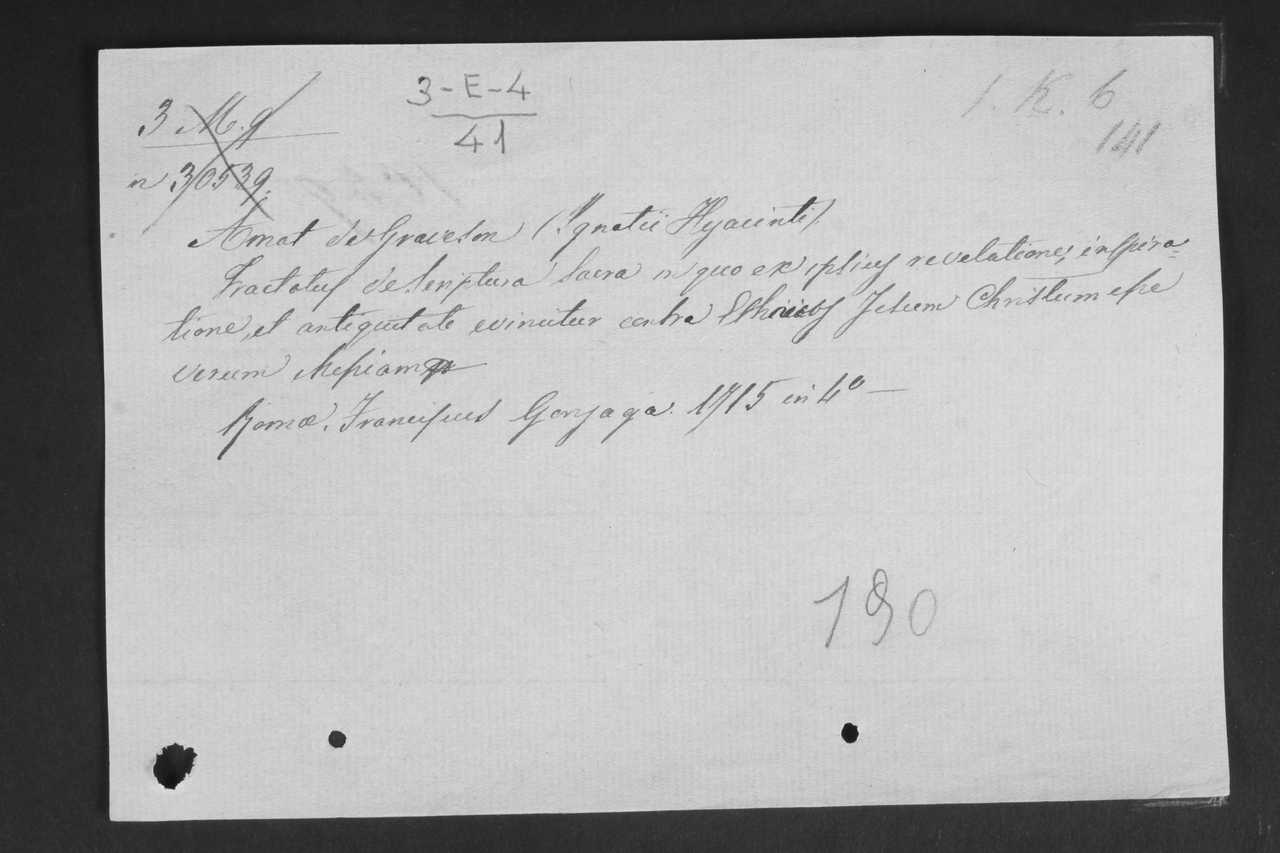 3 M. g
n 30539.
3-E-4
41
1. K. 6
141
Amat de Graveson (Ignatii Hyacinti)
Tractatus de Scriptura Sacra in quo ex ipsius revelatione, inspira=
tione, et antiquitate evincitur contra Ethnicos Jesum Christum esse
verum Messiam
Romæ. Franciscus Gonzaga. 1715 in 4º —
190